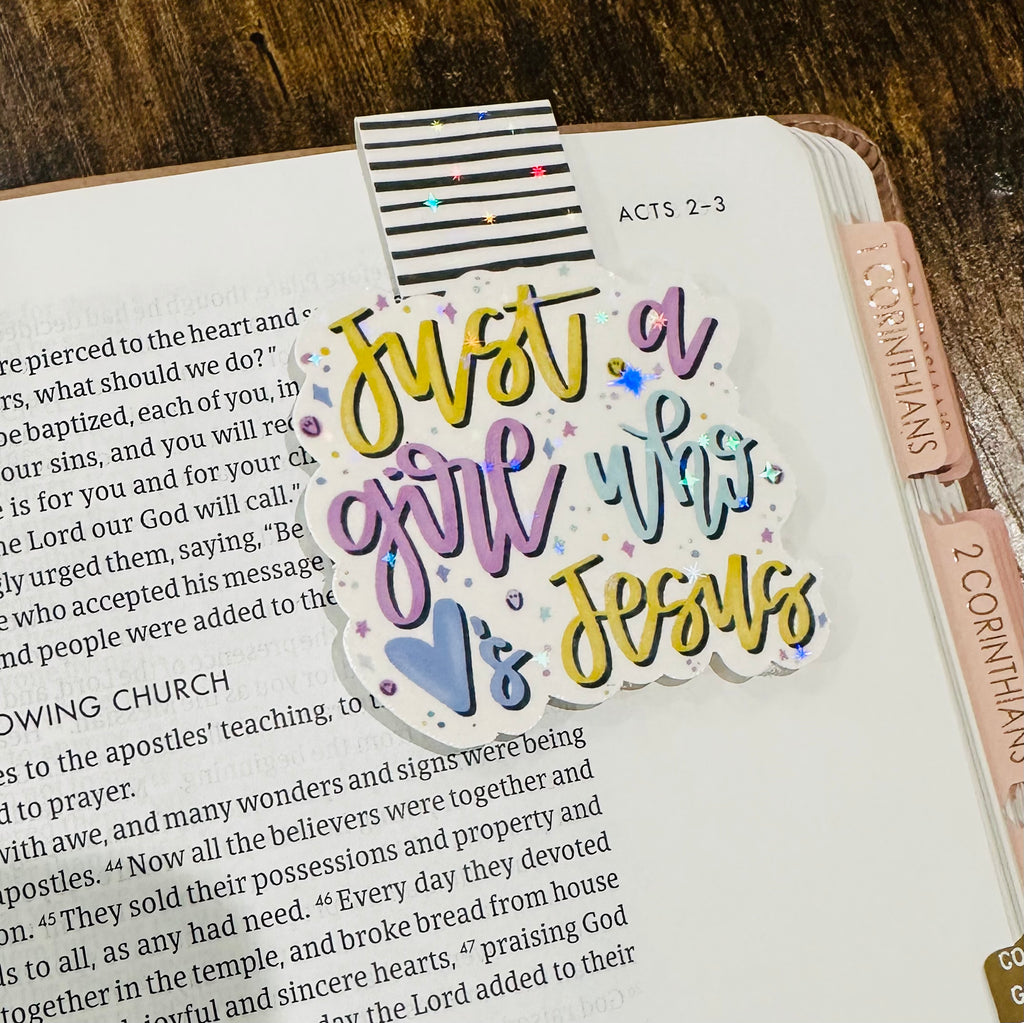 ACTS 2–3
Just a
girl who
♥'s Jesus
re pierced to the heart and s
rs, what should we do?"
be baptized, each of you, in
our sins, and you will rec
e is for you and for your ch
he Lord our God will call."
gly urged them, saying, "Be
e who accepted his message
nd people were added to the
OWING CHURCH
es to the apostles' teaching, to t
d to prayer.
with awe, and many wonders and signs were being
apostles. 44 Now all the believers were together and
on. 45 They sold their possessions and property and
ds to all, as any had need. 46 Every day they devoted
together in the temple, and broke bread from house
joyful and sincere hearts, 47 praising God
day the Lord added to their
1 CORINTHIANS
2 CORINTHIANS
CO
G